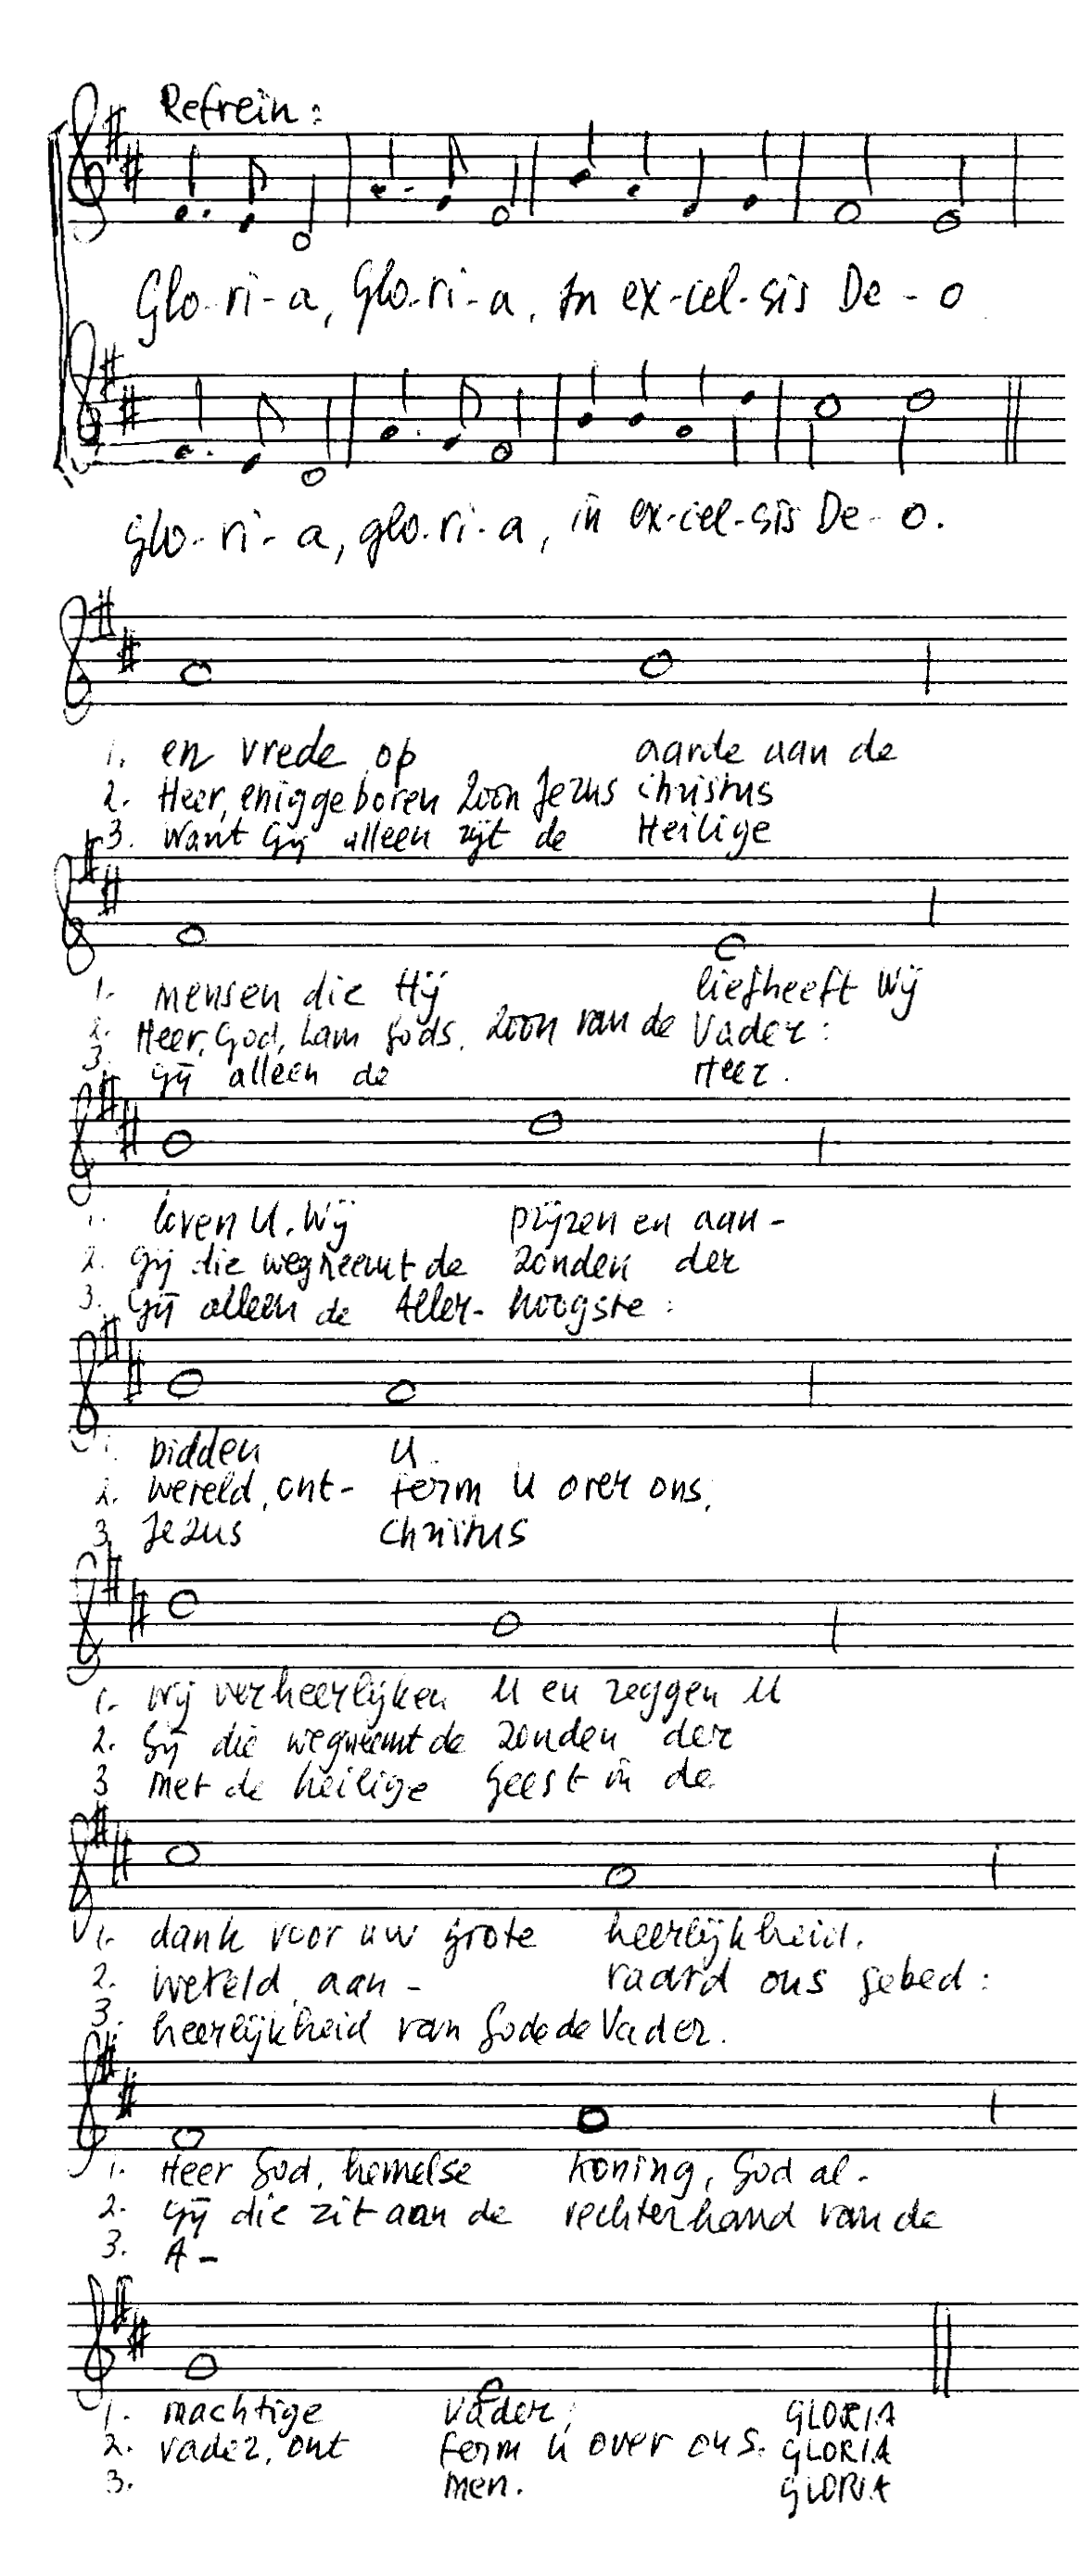 Refrein:
Glo-ri-a, Glo-ri-a, In ex-cel-sis De-o
glo-ri-a, glo-ri-a, in ex-cel-sis De-o.
1. en vrede op aarde aan de
2. Heer, eniggeboren Zoon Jezus Christus
3. Want Gij alleen zijt de Heilige
1. mensen die Hij liefheeft Wij
2. Heer, God, Lam Gods, Zoon van de Vader:
3. Gij alleen de Heer.
1. loven U. Wij prijzen en aan-
2. Gij die wegneemt de zonden der
3. Gij alleen de Aller-hoogste:
1. bidden U.
2. wereld, ont-ferm U over ons,
3. Jezus Christus
1. Wij verheerlijken U en zeggen U
2. Gij die wegneemt de zonden der
3 met de heilige Geest in de
1. dank voor uw grote heerlijkheid.
2. wereld, aan-vaard ons gebed:
3. heerlijkheid van God de Vader.
1. Heer God, hemelse Koning, God al-
2. Gij die zit aan de rechterhand van de
3. A-
1. machtige Vader; GLORIA
2. Vader, ont ferm U over ons. GLORIA
3. men. GLORIA